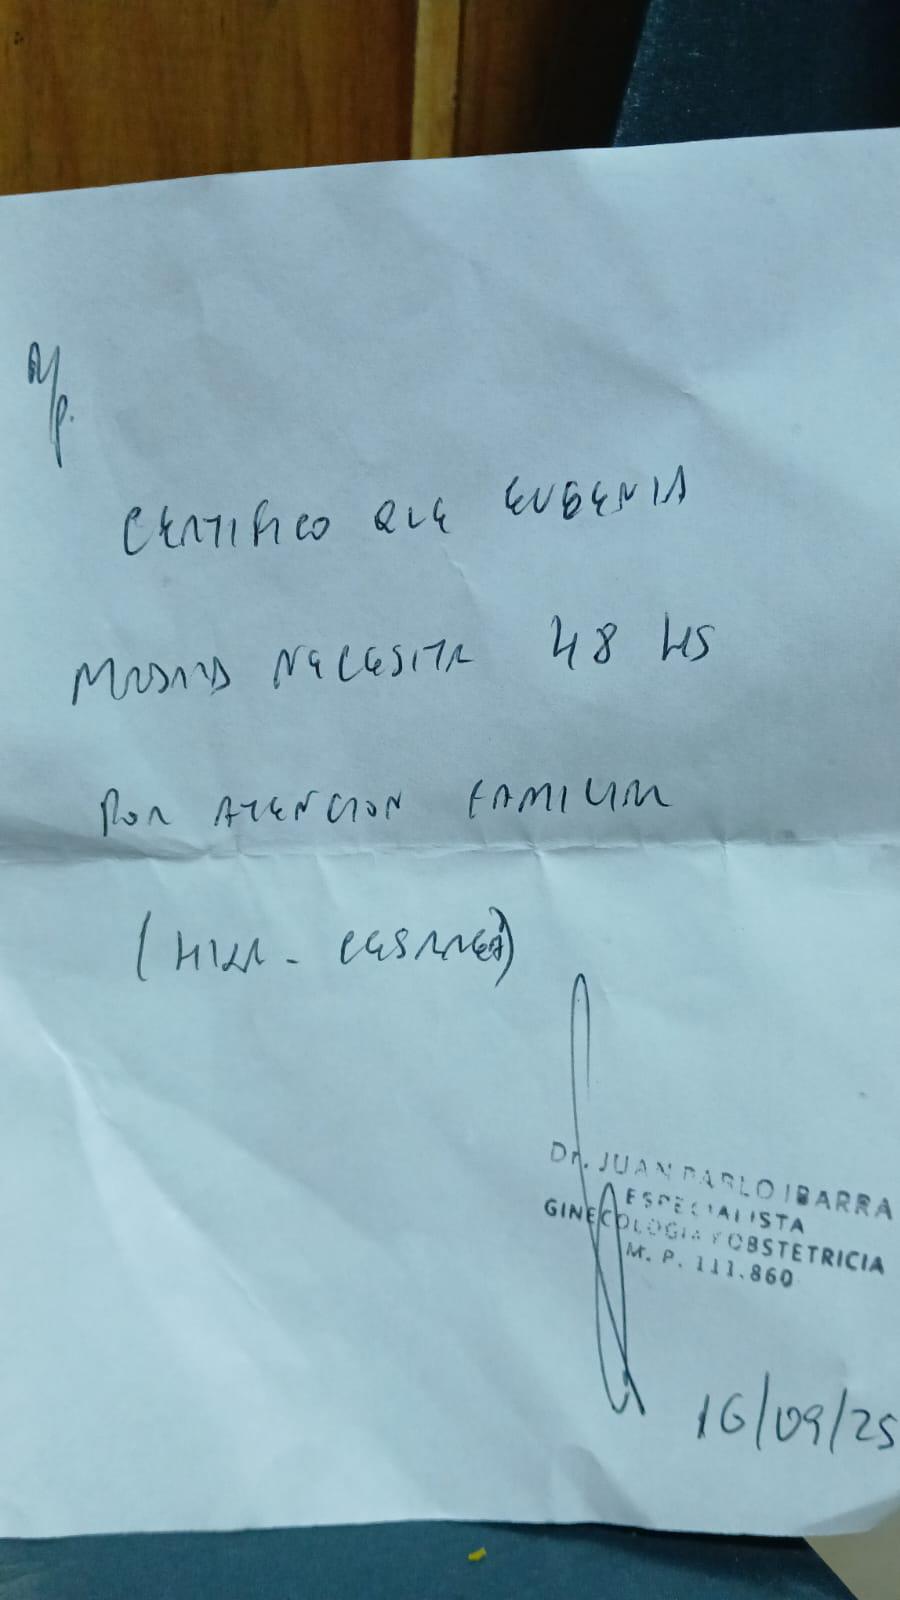 R/p.
CERTIFICO QUE EUGENIA
NECESITA 48 HS
POR ATENCION FAMILIAR
(HIJA - CESAREA)
Dr. JUAN PABLO IBARRA
ESPECIALISTA
GINECOLOGIA Y OBSTETRICIA
M. P. 111.860
16/09/25